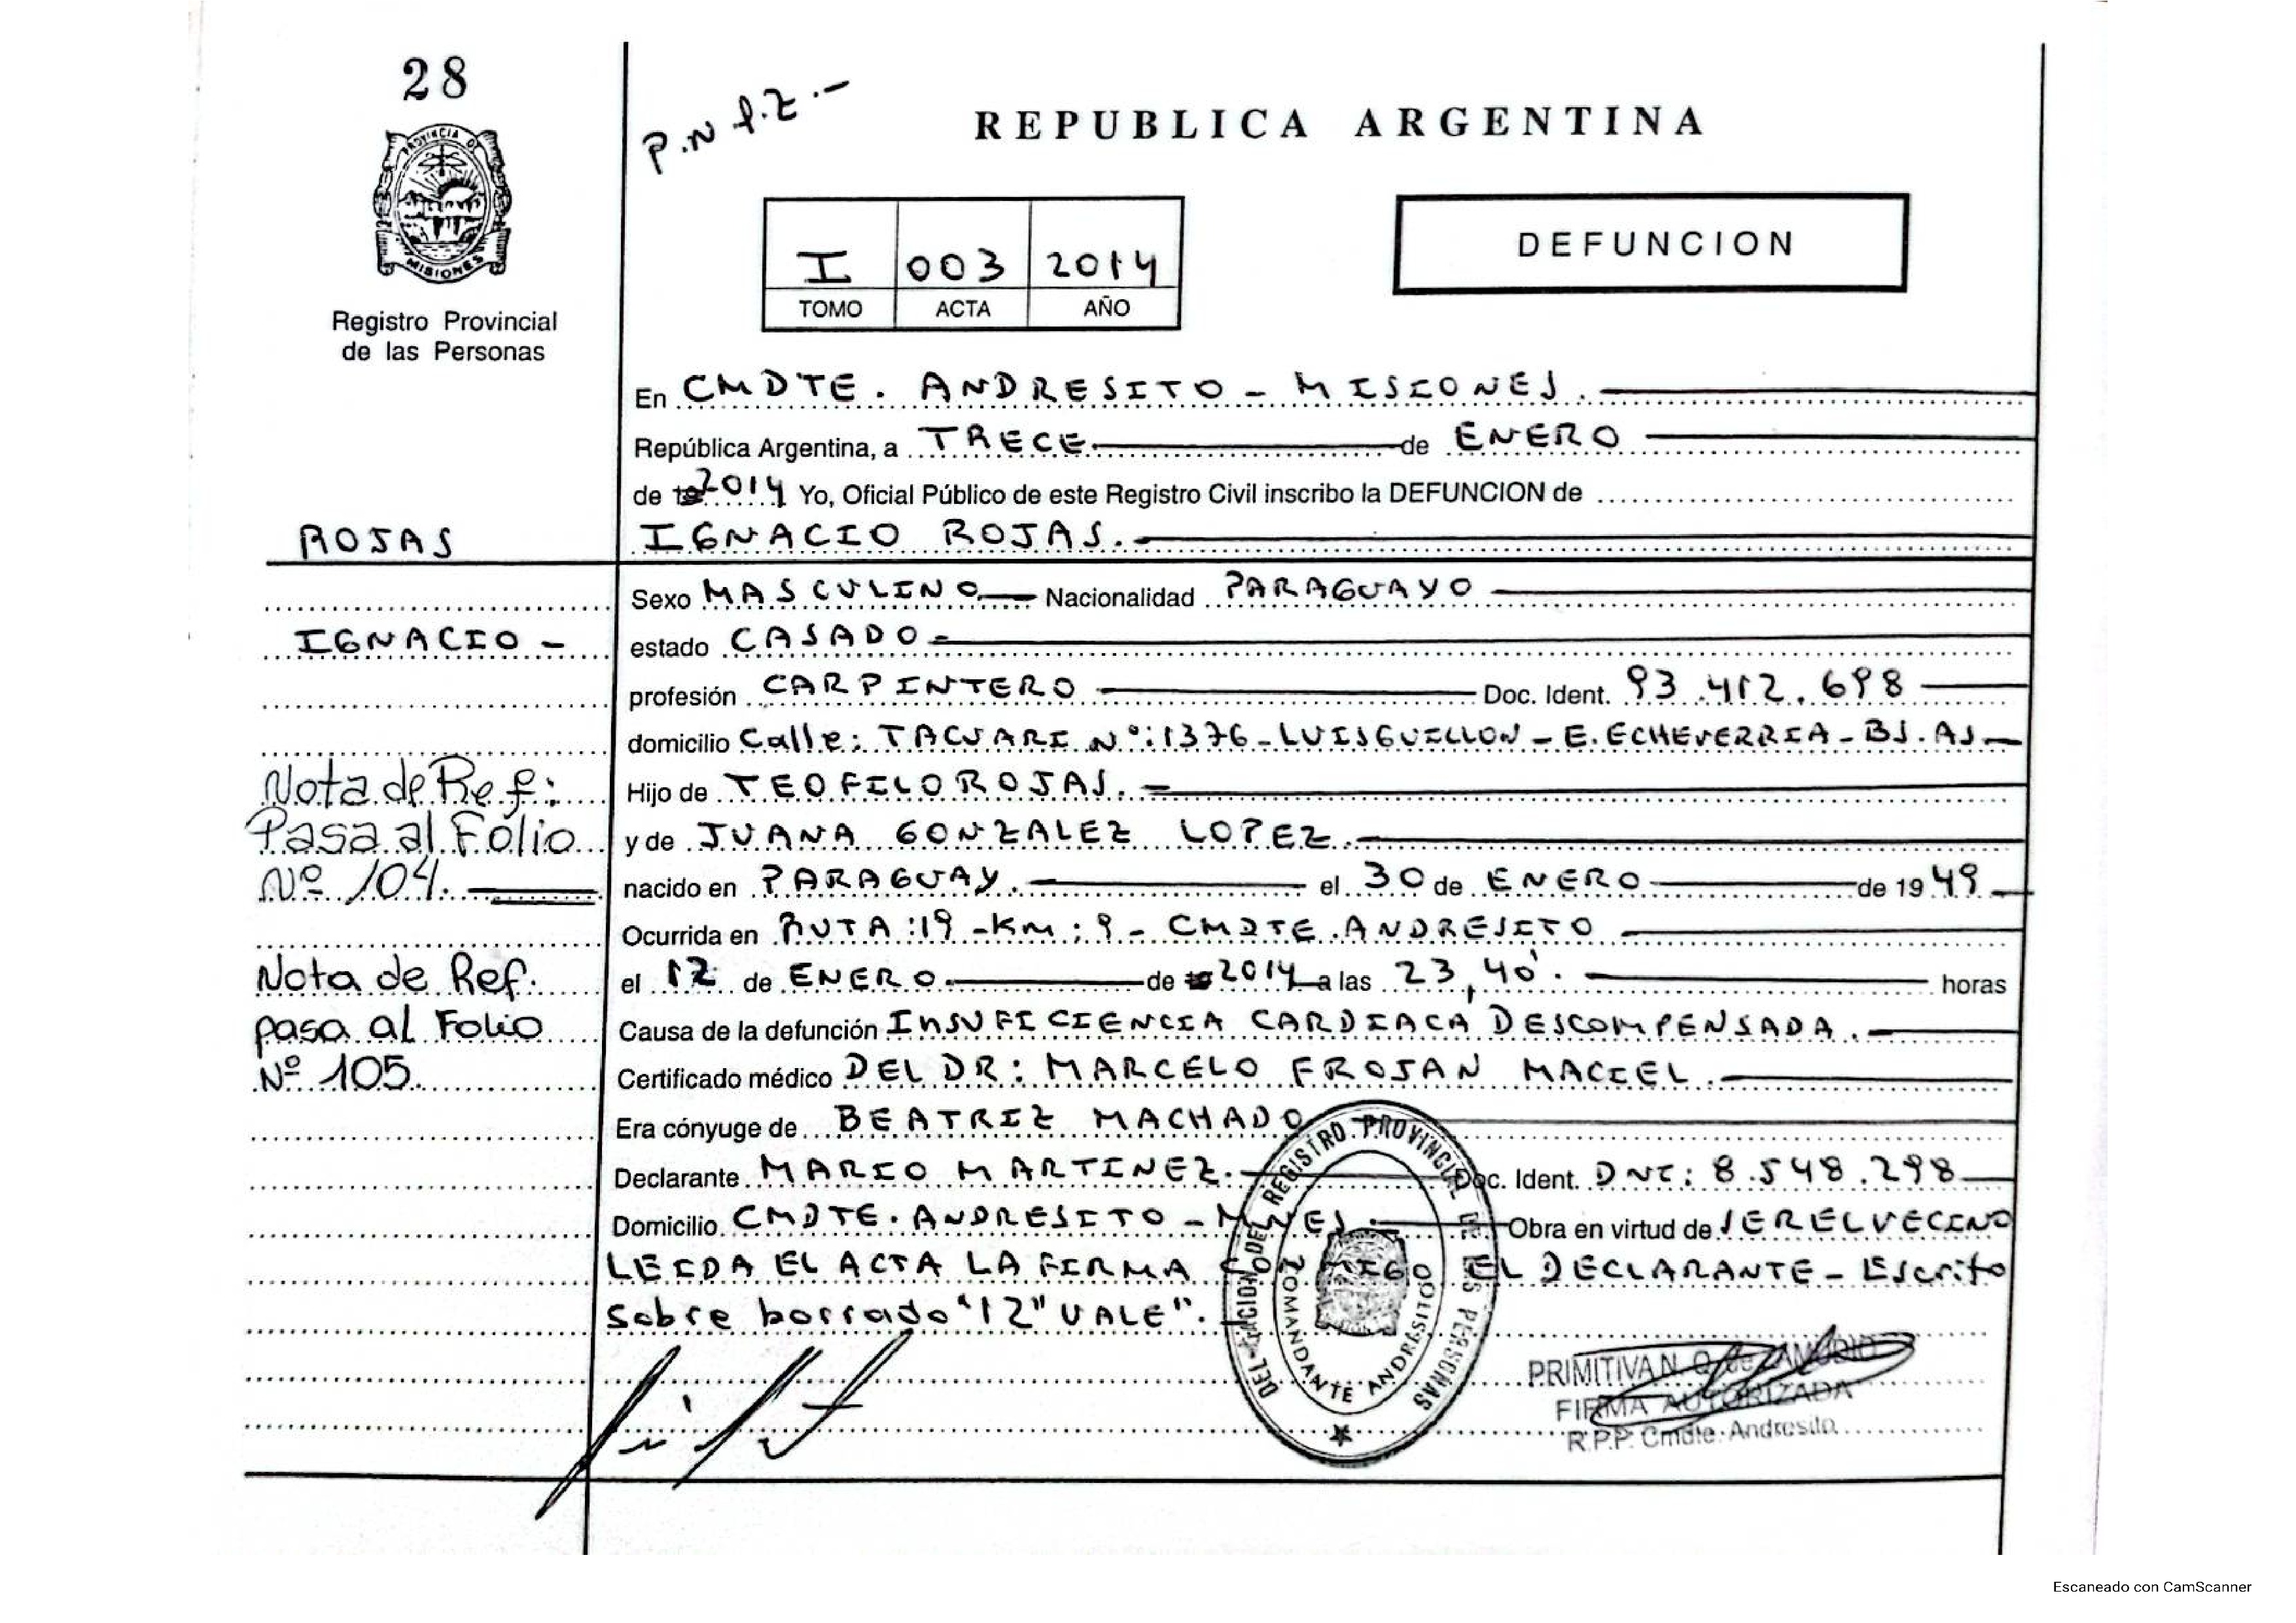 28
P.N f.z.-
REPUBLICA ARGENTINA
PROVINCIA D
MISIONES
Registro Provincial
de las Personas
I 003 2014
TOMO ACTA AÑO
DEFUNCION
En CMDTE. ANDRESITO - MISIONES.
República Argentina, a TRECE. de ENERO
de 2014 Yo, Oficial Público de este Registro Civil inscribo la DEFUNCION de
ROJAS
IGNACIO ROJAS.
Sexo MASCULINO Nacionalidad PARAGUAYO
IGNACIO -
estado CASADO -
profesión CARPINTERO Doc. Ident. 93.412.698
domicilio Calle: TACUARI Nº: 1376 - LUIS GUILLON - E. ECHEVERRIA - BS. AS
Nota de Ref:
Pasa al Folio
Nº 104.
Hijo de TEOFILO ROJAS. -
y de JUANA GONZALEZ LOPEZ.
nacido en PARAGUAY. el 30 de ENERO de 1949
Ocurrida en RUTA: 19 - KM: 9 - CMDTE. ANDRESITO
Nota de Ref.
pasa al Folio
Nº 105.
el 12 de ENERO. de 2014 a las 23,40'. horas
Causa de la defunción INSUFICIENCIA CARDIACA DESCOMPENSADA.
Certificado médico DEL DR: MARCELO FROJAN MACIEL.
Era cónyuge de BEATRIZ MACHADO
Declarante MARIO MARTINEZ. Doc. Ident. DNI: 8.548.298
Domicilio CMDTE. ANDRESITO - Obra en virtud de SER EL VECINO
LEIDA EL ACTA LA FIRMA CONMIGO EL DECLARANTE - Escrito
sobre borrado "12" VALE".
DELEGACION DEL REGISTRO PROVINCIAL DE LAS PERSONAS
COMANDANTE ANDRESITO
PRIMITIVA N. Q. de ZAMUDIO
FIRMA AUTORIZADA
R.P.P. Cmdte. Andresito
Escaneado con CamScanner